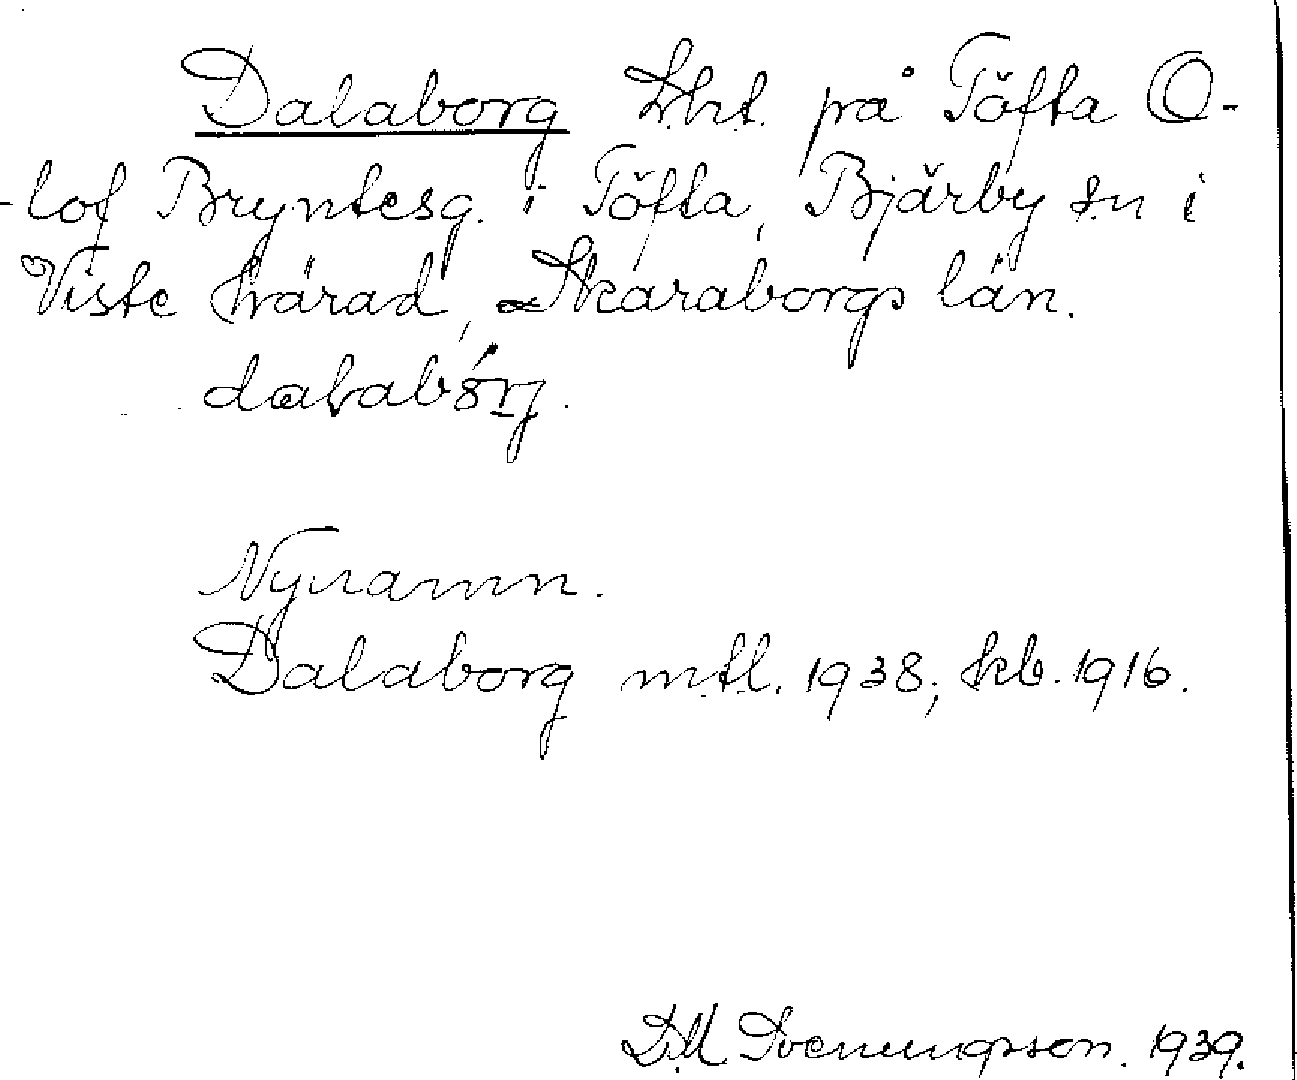 Dalaborg Lht. på Töfta O-
-lof Bryntesg. i Töfta, Bjärby sn i
Viste härad, Skaraborgs län.
Nynamn.
Dalaborg mtl. 1938; kb. 1916.
D.M. Svenungsson. 1939.